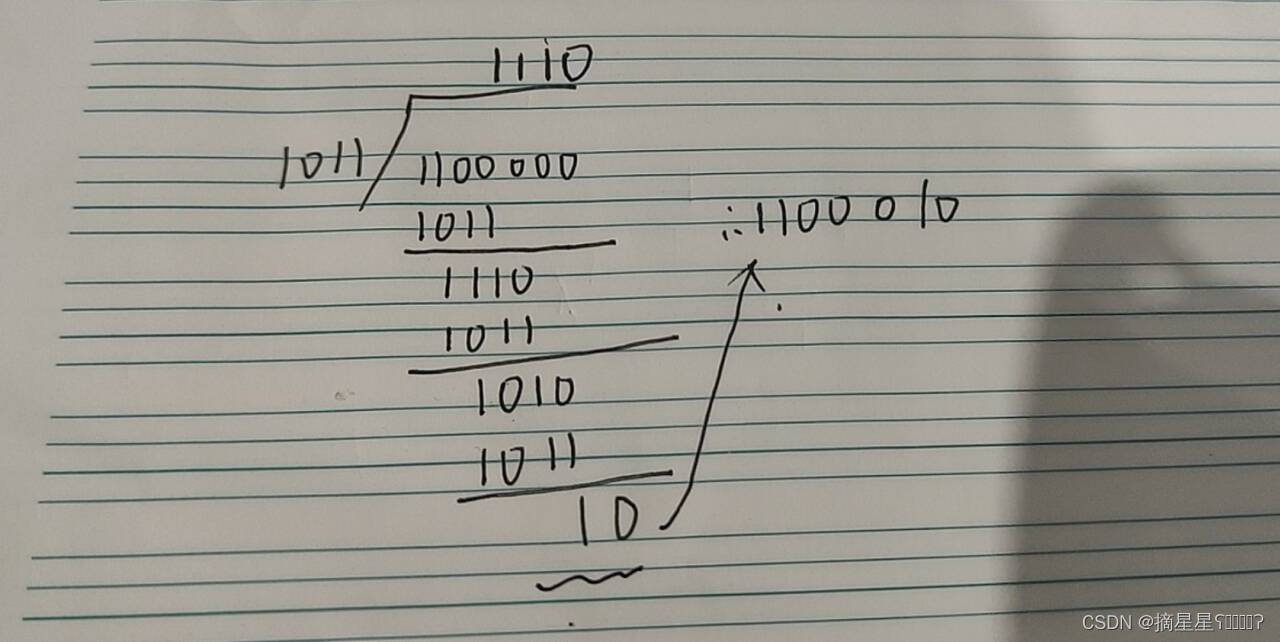 1110
1011 1100000
1011
∴1100010
1110
1011
1010
1011
10
CSDN @摘星星